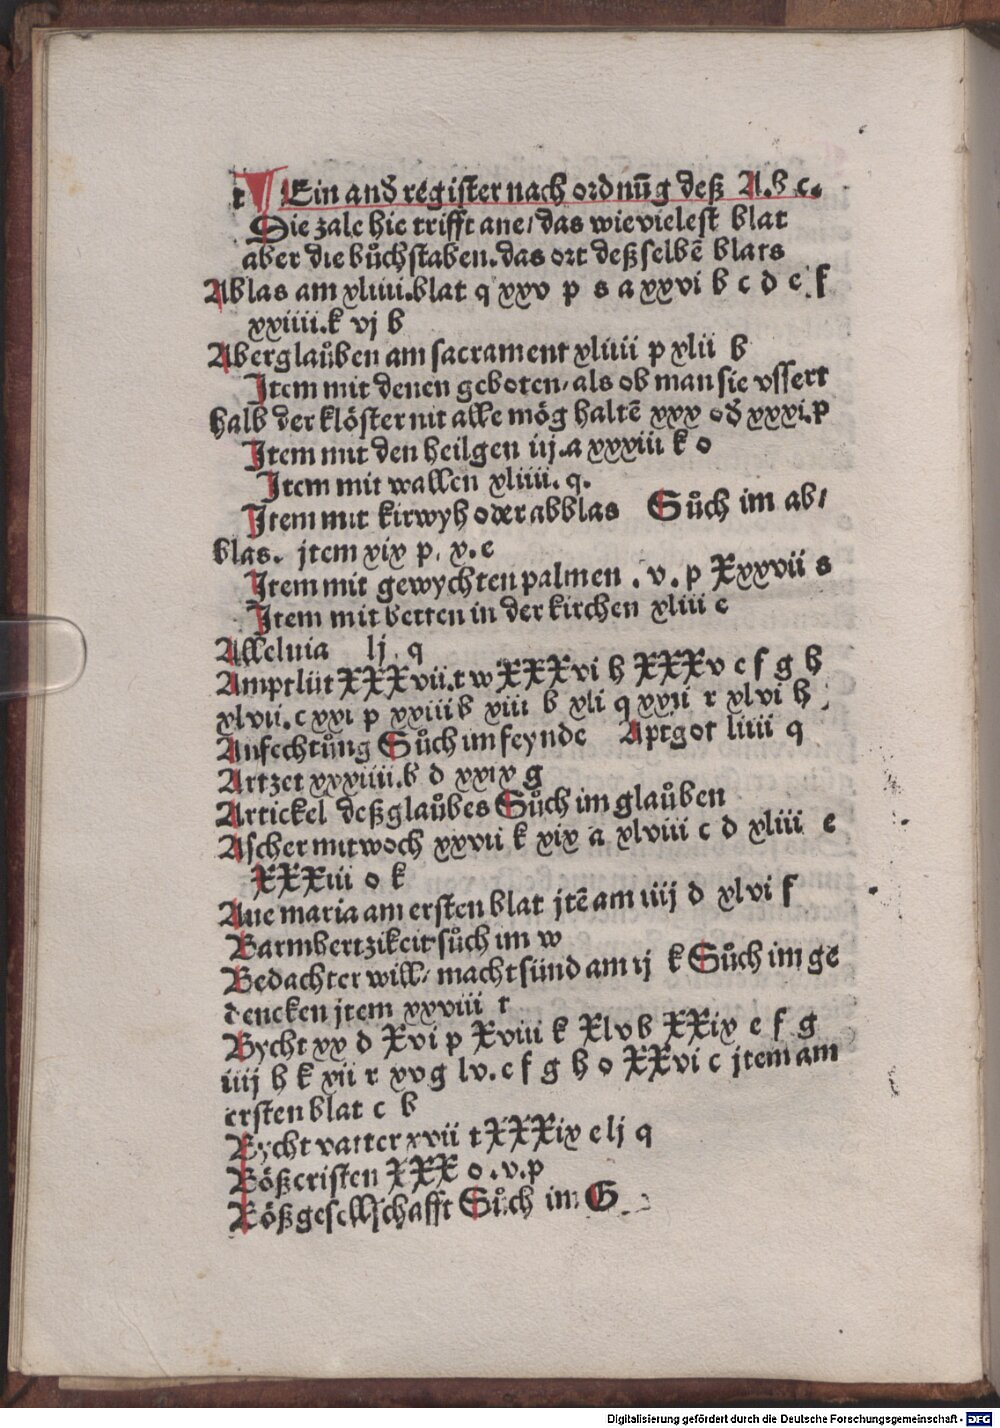 Ein and̄ register nach ordnūg deß A.B c.
Die zale hie trifft ane/ das wievielest blat
aber die bůchstaben. das ort deß selbē blats
Ablas am xliiii. blat q xxv p s a xxvi b c d e f
xxiiii. k vj b
Aberglaůben am sacrament xliiii p xlii b
Item mit denen geboten/ als ob man sie vssert
halb der klöster nit alle mög haltē xxx od̄ xxxi. p
Item mit den heilgen iij. a xxxiii k o
Item mit wallen xliiii. q.
Item mit kirwyh oder abblas Sůch im ab/
blas. jtem xix p. x. e
Item mit gewychten palmen . v. p Xxxvii s
Item mit betten in der kirchen xliii e
Alleluia lj. q
Amptlüt XXXvii. t w XXXvi h XXXv e f g h
xlvii. c xxi p xxiii b xiii b xli q xxii r xlvi h
Anfechtůng Sůch im feynde Aptgot liiii q
Artzet xxxiiii. b d xxix g
Artickel deß glaůbes Sůch im glaůben
Ascher mitwoch xxvii k xix a xlviii c d xliii e
XXXiii o k
Aue maria am ersten blat jtē am iiij d xlvi f
Barmhertzikeit sůch im w
Bedachter will/ macht sünd am ij k Sůch im ge
dencken jtem xxviii t
Bycht xx d Xvi p Xviii k Xlv b XXix e f g
iiij h k xii r xv g lv. e f g h o XXvi c jtem am
ersten blat c b
Bycht vatter xvii t XXXix e lj q
Böß cristen XXX o . v. p
Böß gesellschafft Sůch im G
Digitalisierung gefördert durch die Deutsche Forschungsgemeinschaft - DFG